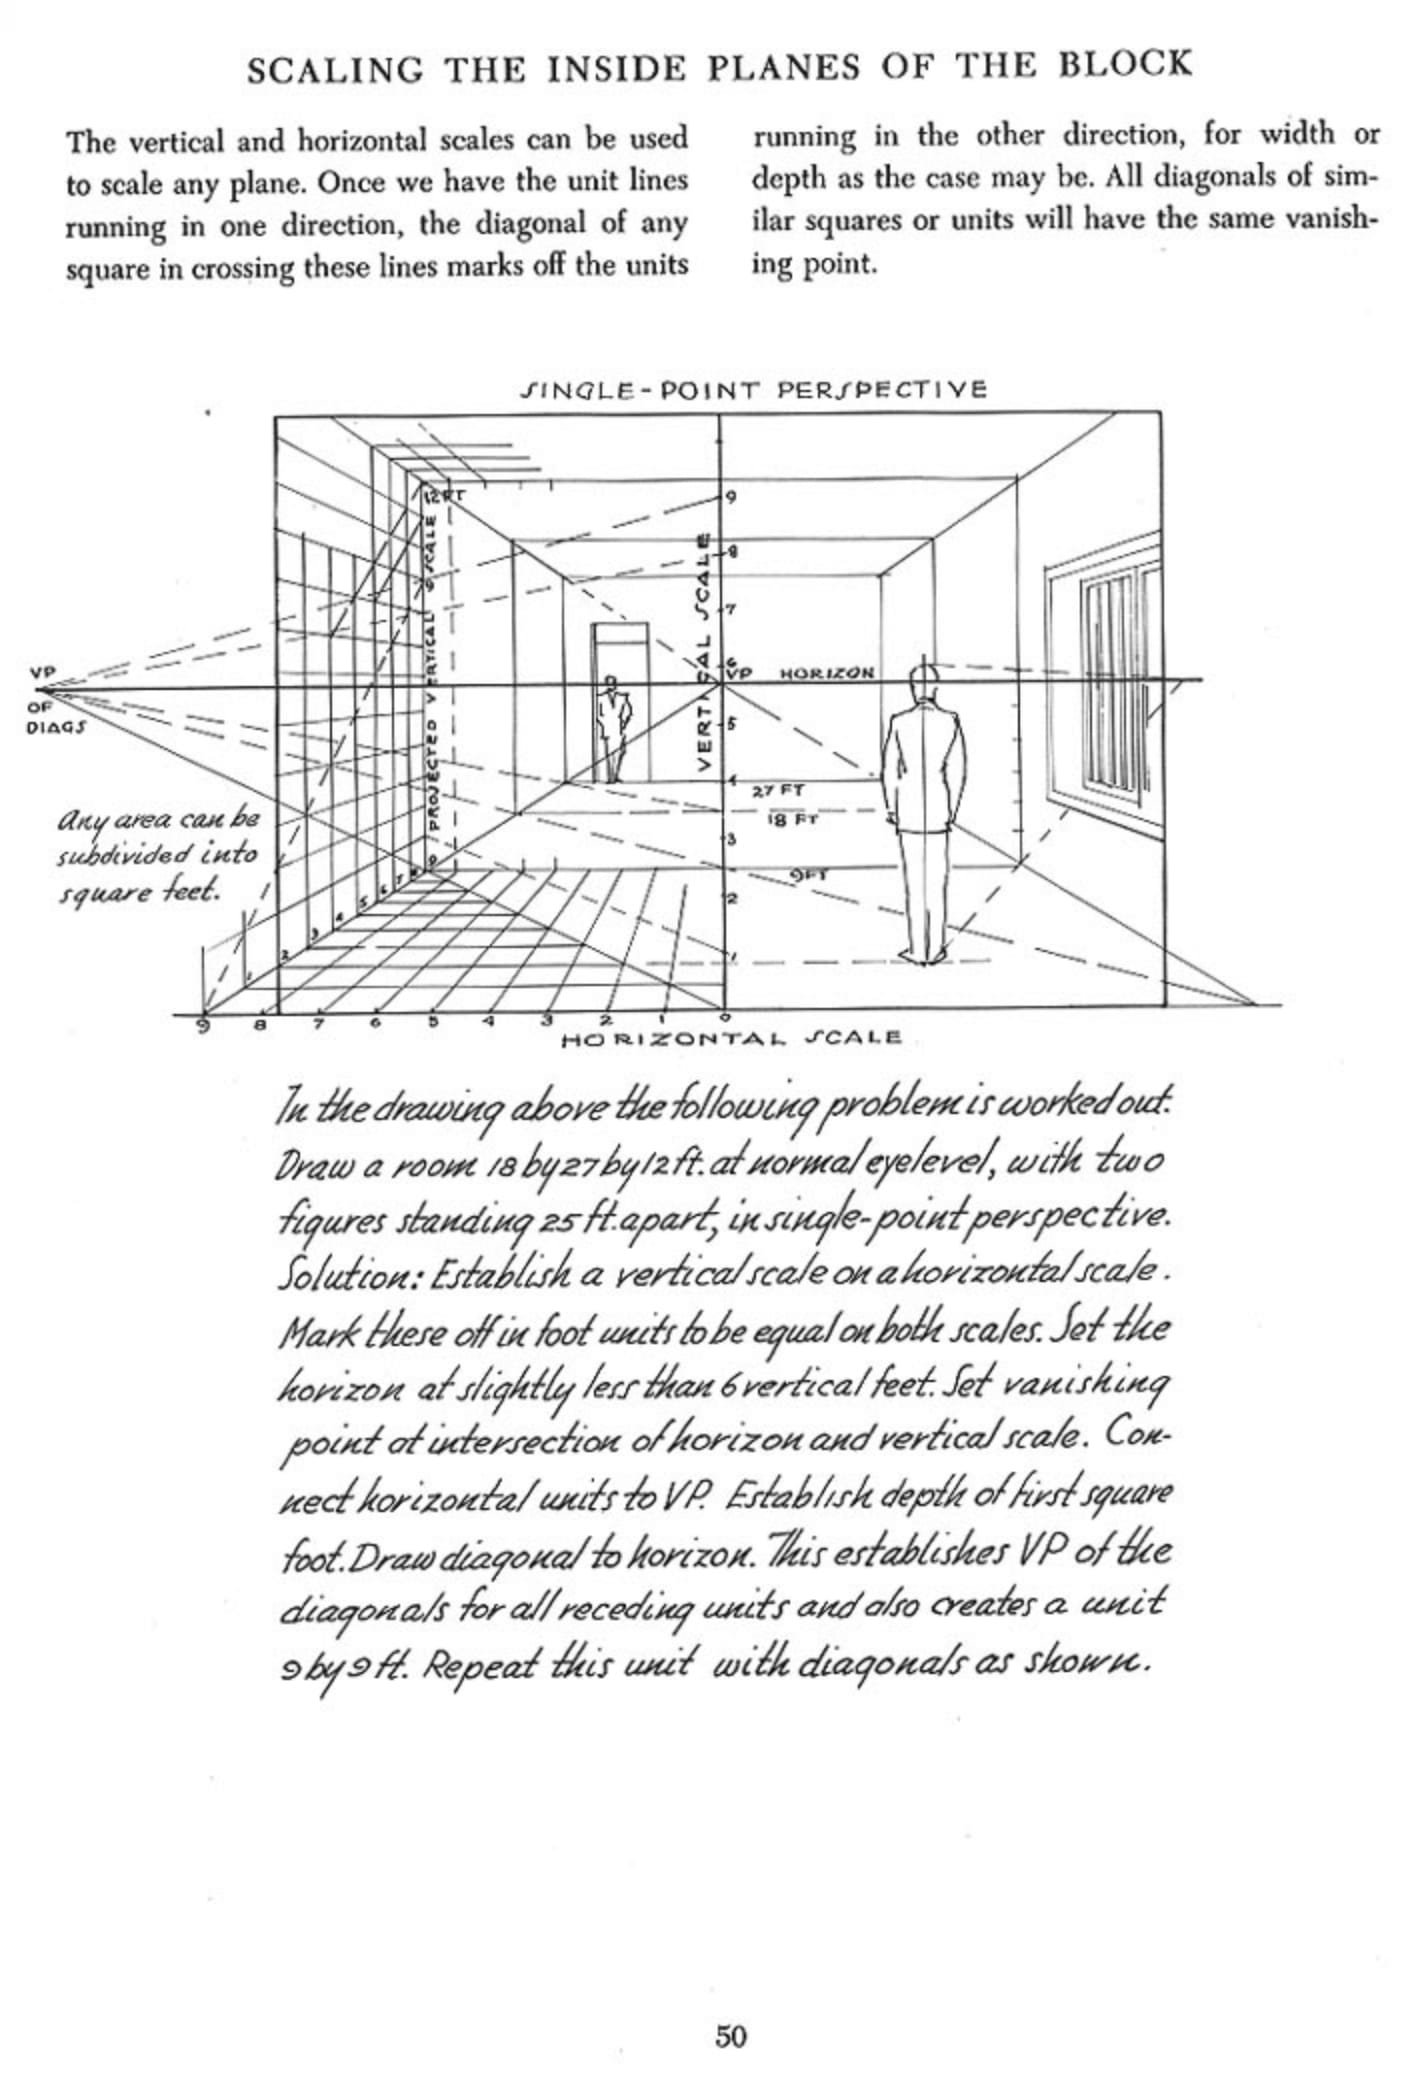 SCALING THE INSIDE PLANES OF THE BLOCK
The vertical and horizontal scales can be used
to scale any plane. Once we have the unit lines
running in one direction, the diagonal of any
square in crossing these lines marks off the units
running in the other direction, for width or
depth as the case may be. All diagonals of sim-
ilar squares or units will have the same vanish-
ing point.
SINGLE-POINT PERSPECTIVE
12 FT
9
PROJECTED VERTICAL SCALE
9
8
7
VERTICAL SCALE
6
VP
HORIZON
5
4
3
2
1
VP
OF
DIAGS
27 FT
18 FT
9 FT
Any area can be
subdivided into
square feet.
0
8
7
6
5
4
3
2
1
9 8 7 6 5 4 3 2 1 0
HORIZONTAL SCALE
In the drawing above the following problem is worked out.
Draw a room 18 by 27 by 12 ft. at normal eye level, with two
figures standing 25 ft. apart, in single-point perspective.
Solution: Establish a vertical scale on a horizontal scale.
Mark these off in foot units to be equal on both scales. Set the
horizon at slightly less than 6 vertical feet. Set vanishing
point at intersection of horizon and vertical scale. Con-
nect horizontal units to VP. Establish depth of first square
foot. Draw diagonal to horizon. This establishes VP of the
diagonals for all receding units and also creates a unit
9 by 9 ft. Repeat this unit with diagonals as shown.
50